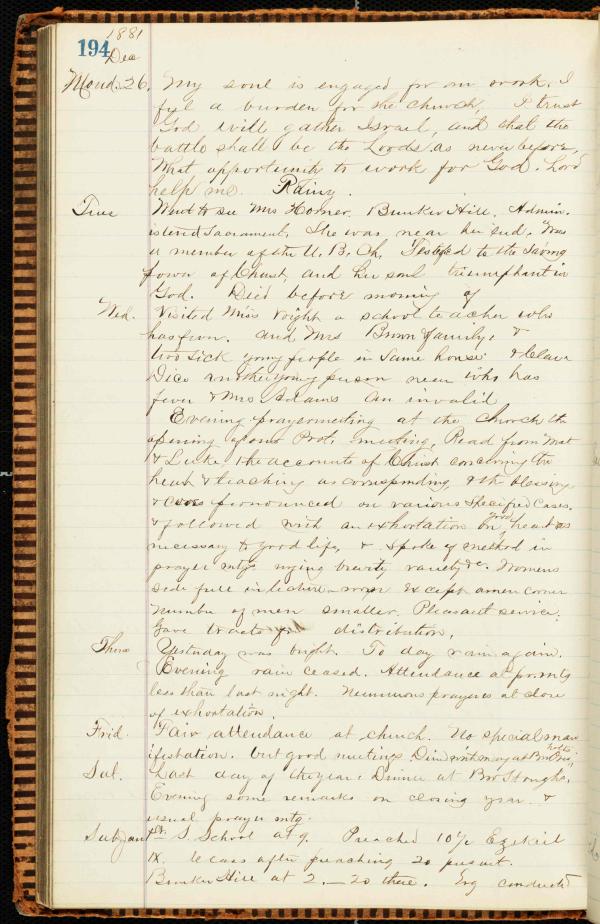 194
1881
Dec
Mond. 26. My soul is engaged for our work. I
feel a burden for the church. I trust
God will gather Israel, and that the
battle shall be the Lords as never before.
What opportunity to work for God. Lord
help me. Rainy.
Tues Went to see Mrs Homer. Bunker Hill. Admin-
istered Sacrament. She was near her end. Was
a member of the U. B. Ch. Testified to the saving
power of Christ, and her soul triumphant in
God. Died before morning of
Wed. Visited Miss Voight a school teacher who
has fever. and Mrs Brown & family, &
two sick young people in same house &
Dice another young person near who has
fever & Mrs Adams an invalid
Evening prayermeeting at the church the
opening of our Prot. meeting. Read from Mat
& Luke, the accounts of Christ concerning the
heart & teaching as corresponding & the blessing
& woes pronounced on various specified cases.
& followed with an exhortation on good heart as
necessary to good life, &. Spoke of method in
prayer mtgs urging brevity variety &c. Womens
side full in lecture room except amen corner
Number of men smaller. Pleasant service.
Gave tracts for distribution.
Thurs Yesterday was bright. To day rain again.
Evening rain ceased. Attendance at pr. mtg
less than last night. Numerous prayers at close
of exhortation.
Frid. Fair attendance at church. No special man-
ifestation. but good meeting. at Bro
Sat. Last day of the year. Dinner at Bro Stoughs.
Evening some remarks on closing year &
usual prayer mtg.
Sab Jan 1st S. School at 9. Preached 10½ Ezekiel
IX. Class after preaching 20 present.
Bunker Hill at 2.—20 there. Erg conducted